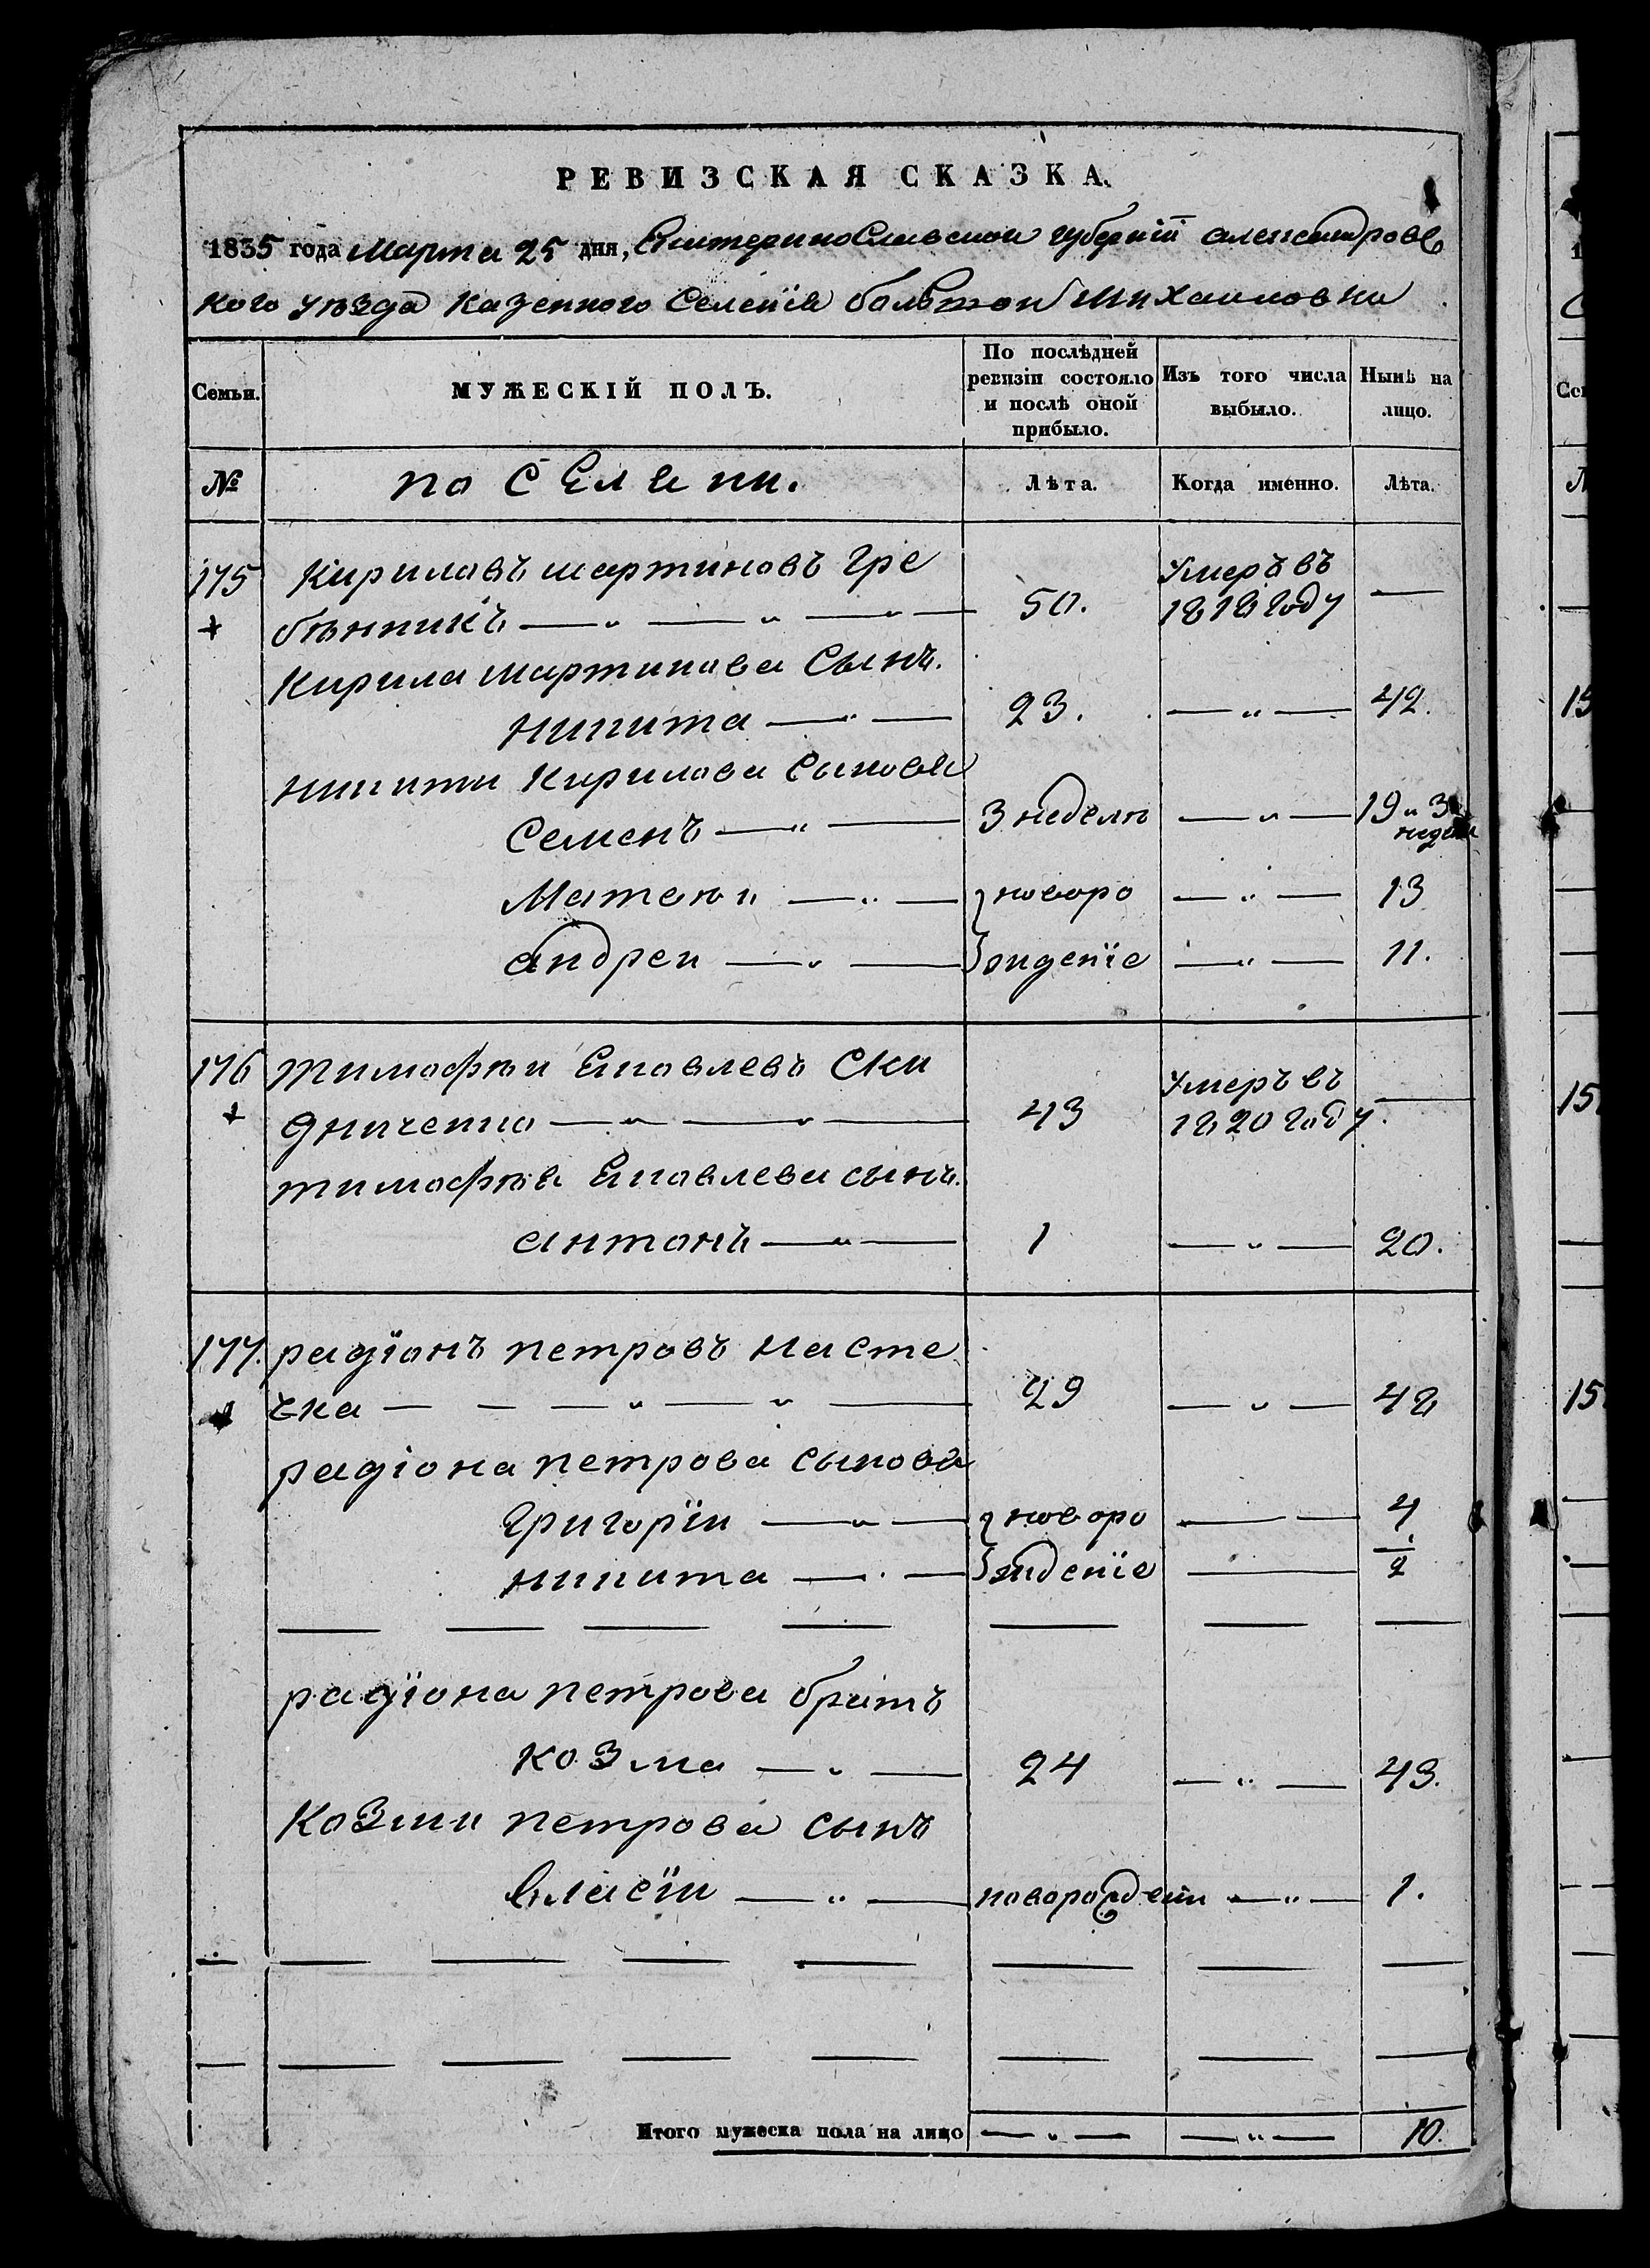 РЕВИЗСКАЯ СКАЗКА.
1835 года Марта 25 дня, Екатеринославской губернїй александровс
кого уѣзда казенного Селенїя большой Михаиловки
Семьи. МУЖЕСКІЙ ПОЛЪ. По послѣдней ревизіи состояло и послѣ оной прибыло. Изъ того числа выбыло. Нынѣ на лицо.
№ поселяни. Лѣта. Когда именно. Лѣта.
175 Кириловъ мартиновъ Гре Умеръ въ
бѣнникъ — 50. 1818 году —
Кирила мартинова Сынъ.
никита — 23. — 42.
никити Кирилова Сыновя
Семенъ — 3 недели — 19 и 3 недели
Матвѣи — новоро — 13
андреи — жденїе — 11.
176 тимофѣи Яковлевъ Ски Умеръ въ
дниченко — 43 1820 году —
тимофѣя Яковлева сынъ.
антонъ — 1 — 20.
177. радїонъ петровъ Насте
чка — 29 — 48
радіона петрова сыновя
Григорїи — новоро — 4
никита — жденїе — 1/2
радїона петрова братъ
козма — 24 — 43.
Козми петрова сынъ
власїи — новорожденїи — 1.
Итого мужеска пола на лицо — — 10.